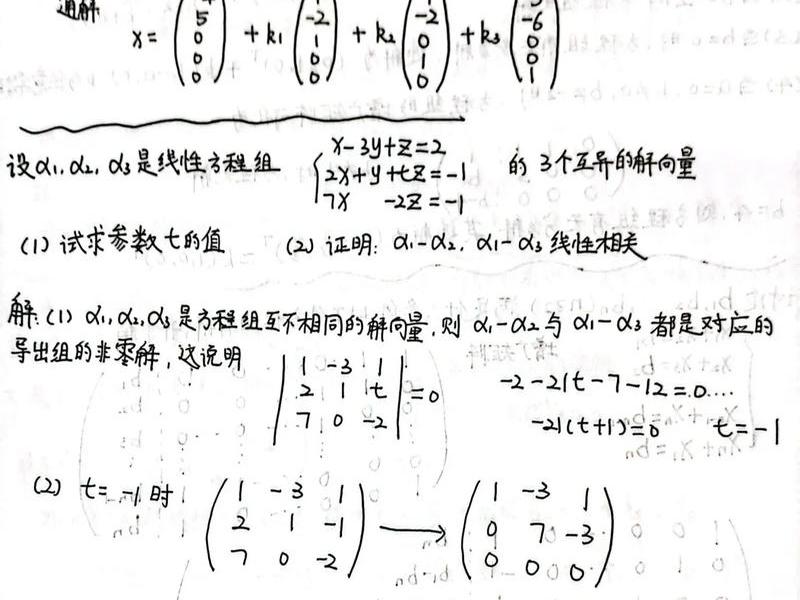 通解
x = ( 5 0 0 0 ) + k₁ ( -2 1 0 0 ) + k₂ ( -2 0 1 0 ) + k₃ ( -6 0 0 1 )
设α₁, α₂, α₃是线性方程组 { x-3y+z=2
2x+y+tz=-1
7x -2z=-1
的 3个互异的解向量
(1) 试求参数t的值 (2) 证明: α₁-α₂, α₁-α₃ 线性相关
解: (1) α₁,α₂,α₃是方程组互不相同的解向量, 则 α₁-α₂与 α₁-α₃ 都是对应的
导出组的非零解, 这说明
| 1 -3 1 |
| 2 1 t | =0
| 7 0 -2 |
-2-21t-7-12=0....
-21(t+1)=0 t=-1
(2) t=-1时
( 1 -3 1
2 1 -1
7 0 -2 ) → ( 1 -3 1
0 7 -3
0 0 0 )